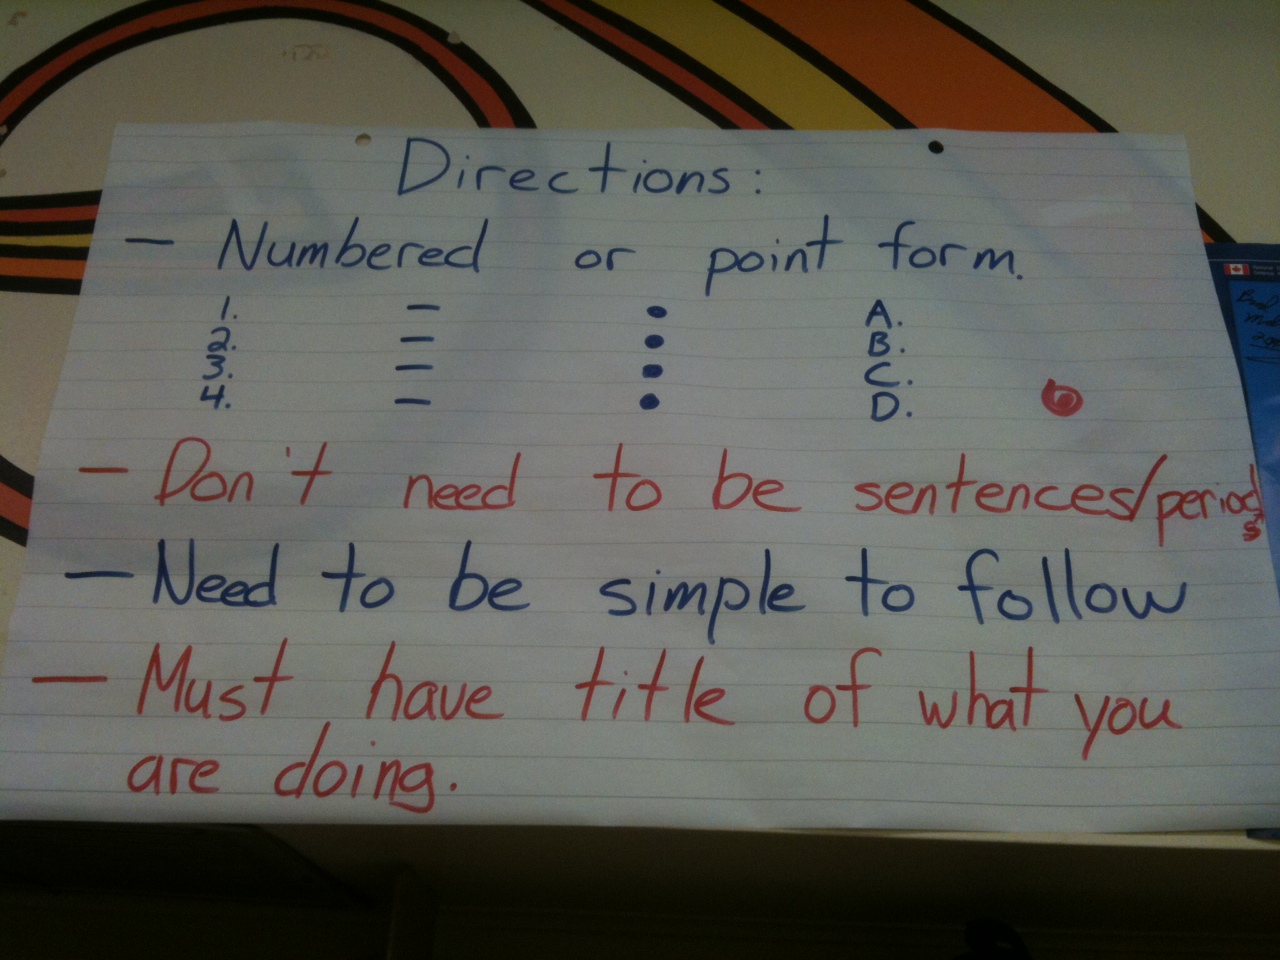 Directions:
- Numbered or point form.
1. - • A.
2. - • B.
3. - • C.
4. - • D.
- Don't need to be sentences/periods
- Need to be simple to follow
- Must have title of what you
are doing.